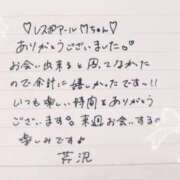 ♡レスポアール♡ちゃん♡
ありがとうございました。
お会い出来ると思ってなかった
ので余計に嬉しかったです~!!
いつも楽しい時間をありがとう
ございます。来週お会いするの
楽しみです♪
芹沢